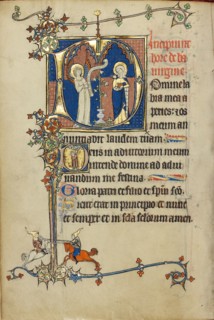 Incipiunt
hore de
uirgine
Domine la
bia mea a
peries: et os
meum an
nunciabit laudem tuam
Deus in adiutorium meum
intende domine ad adiu
uandum me festina
Gloria patri et filio et spui sco.
Sicut erat in principio et nunc
et semper et in scla seculorum amen